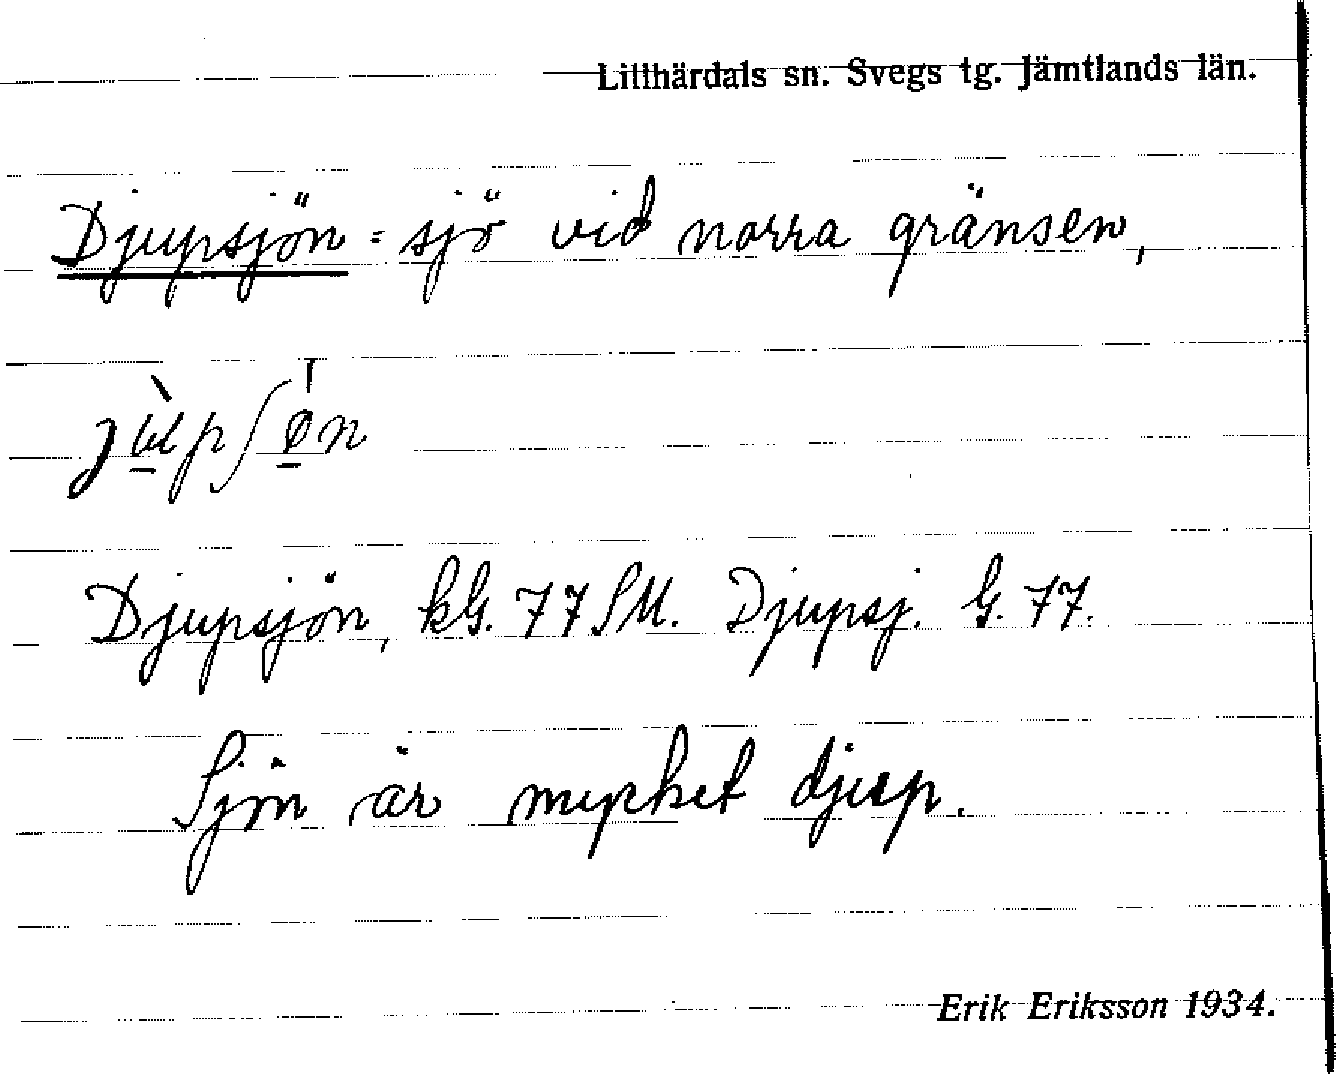 Lillhärdals sn. Svegs tg. Jämtlands län.
Djupsjön = sjö vid norra gränsen,
Djupsjön, kG. 77 SM. Djupsj. G. 77.
Sjön är mycket djup.
Erik Eriksson 1934.